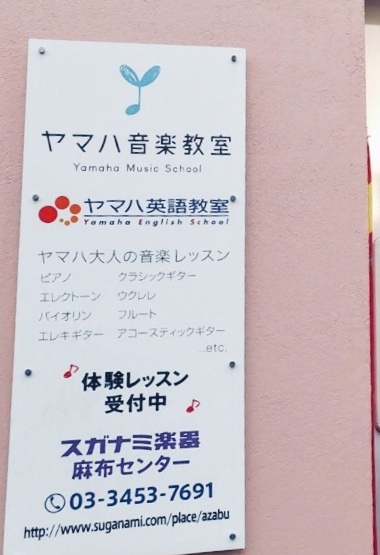 ヤマハ音楽教室
Yamaha Music School
ヤマハ英語教室
Yamaha English School
ヤマハ大人の音楽レッスン
ピアノ クラシックギター
エレクトーン ウクレレ
バイオリン フルート
エレキギター アコースティックギター
...etc.
体験レッスン
受付中
スガナミ楽器
麻布センター
03-3453-7691
http://www.suganami.com/place/azabu